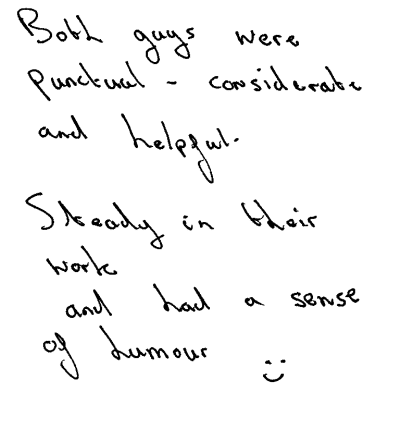 Both guys were
punctual - considerate
and helpful.
Steady in their
work
and had a sense
of humour ::